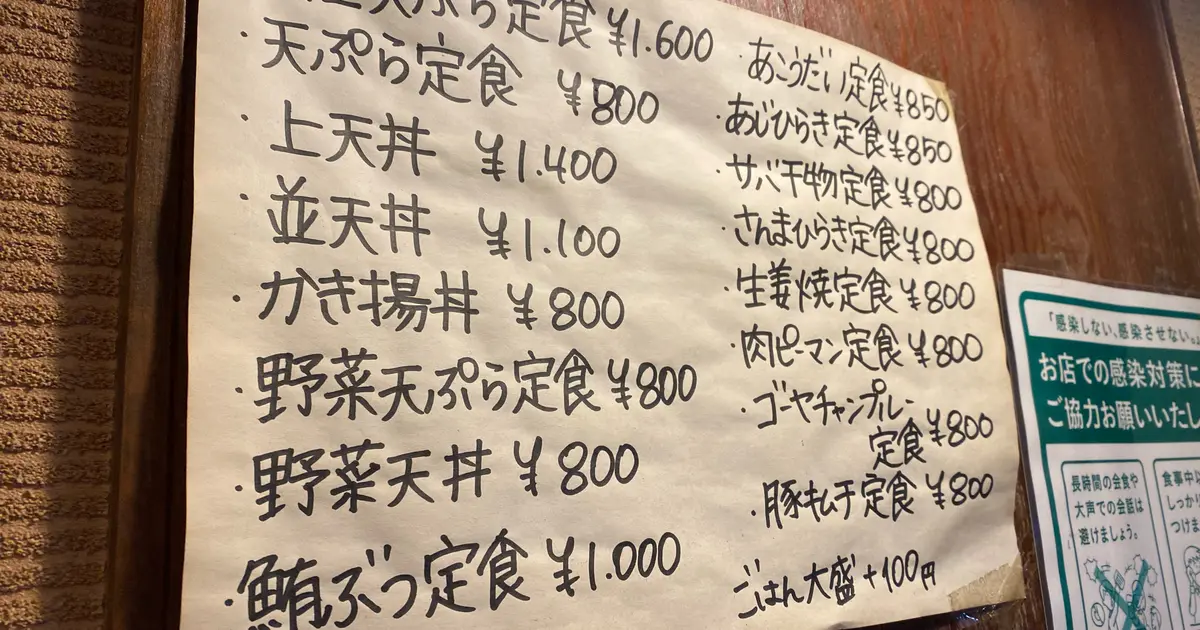 上天ぷら定食 ¥1.600
・天ぷら定食 ¥800
・上天丼 ¥1.400
・並天丼 ¥1.100
・かき揚丼 ¥800
・野菜天ぷら定食 ¥800
・野菜天丼 ¥800
・鮪ぶつ定食 ¥1.000
・あこうだい定食 ¥850
・あじひらき定食 ¥850
・サバ干物定食 ¥800
・さんまひらき定食 ¥800
・生姜焼定食 ¥800
・肉ピーマン定食 ¥800
・ゴーヤチャンプルー
定食 ¥800
・豚キムチ定食 ¥800
ごはん大盛+100円
「感染しない、感染させない。」
お店での感染対策に
ご協力お願いいたし
長時間の会食や
大声での会話は
避けましょう。
食事中
しっかり
つけま